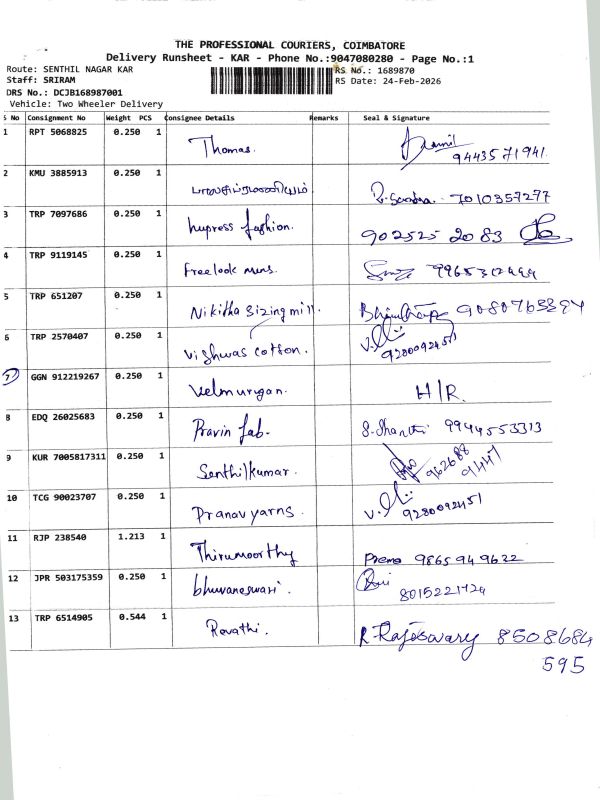 THE PROFESSIONAL COURIERS, COIMBATORE
Delivery Runsheet - KAR - Phone No.:9047080280 - Page No.:1
Route: SENTHIL NAGAR KAR
RS No.: 1689870
Staff: SRIRAM
RS Date: 24-Feb-2026
DRS No.: DCJB168987001
Vehicle: Two Wheeler Delivery
S No Consignment No Weight PCS Consignee Details Remarks Seal & Signature
1 RPT 5068825 0.250 1 Thomas. 9443571941
2 KMU 3885913 0.250 1 7010357277
3 TRP 7097686 0.250 1 hupress fashion. 902525 2083
4 TRP 9119145 0.250 1 Freelook mens.
5 TRP 651207 0.250 1 Nikitha Sizing mill.
6 TRP 2570407 0.250 1 Vishwas cotton. 9280092451
7 GGN 912219267 0.250 1 Velmurugan. H/R.
8 EDQ 26025683 0.250 1 Pravin fab. S. Shanthi 9944553313
9 KUR 7005817311 0.250 1 Senthilkumar. 962688 9447
10 TCG 90023707 0.250 1 Pranav yarns. 9280092451
11 RJP 238540 1.213 1 Thirumoorthy Prema 9865949622
12 JPR 503175359 0.250 1 bhuvaneswari. 8015221724
13 TRP 6514905 0.544 1 Revathi. R. Rajeswary 8508684
595